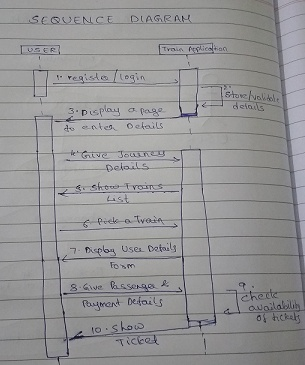 SEQUENCE DIAGRAM
USER
Train Application
1. register/login
2.
Store/validate
details
3. Display a page
to enter Details
4. Give Journey
Details
5. Show Trains
List
6. Pick a Train
7. Display User Details
Form
8. Give Passenger &
Payment Details
9.
check
availability
of tickets
10. Show
Ticket